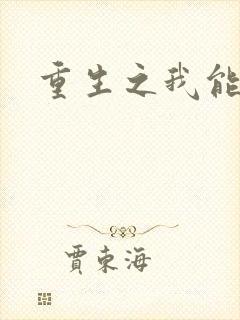 重生之我能
賈東海